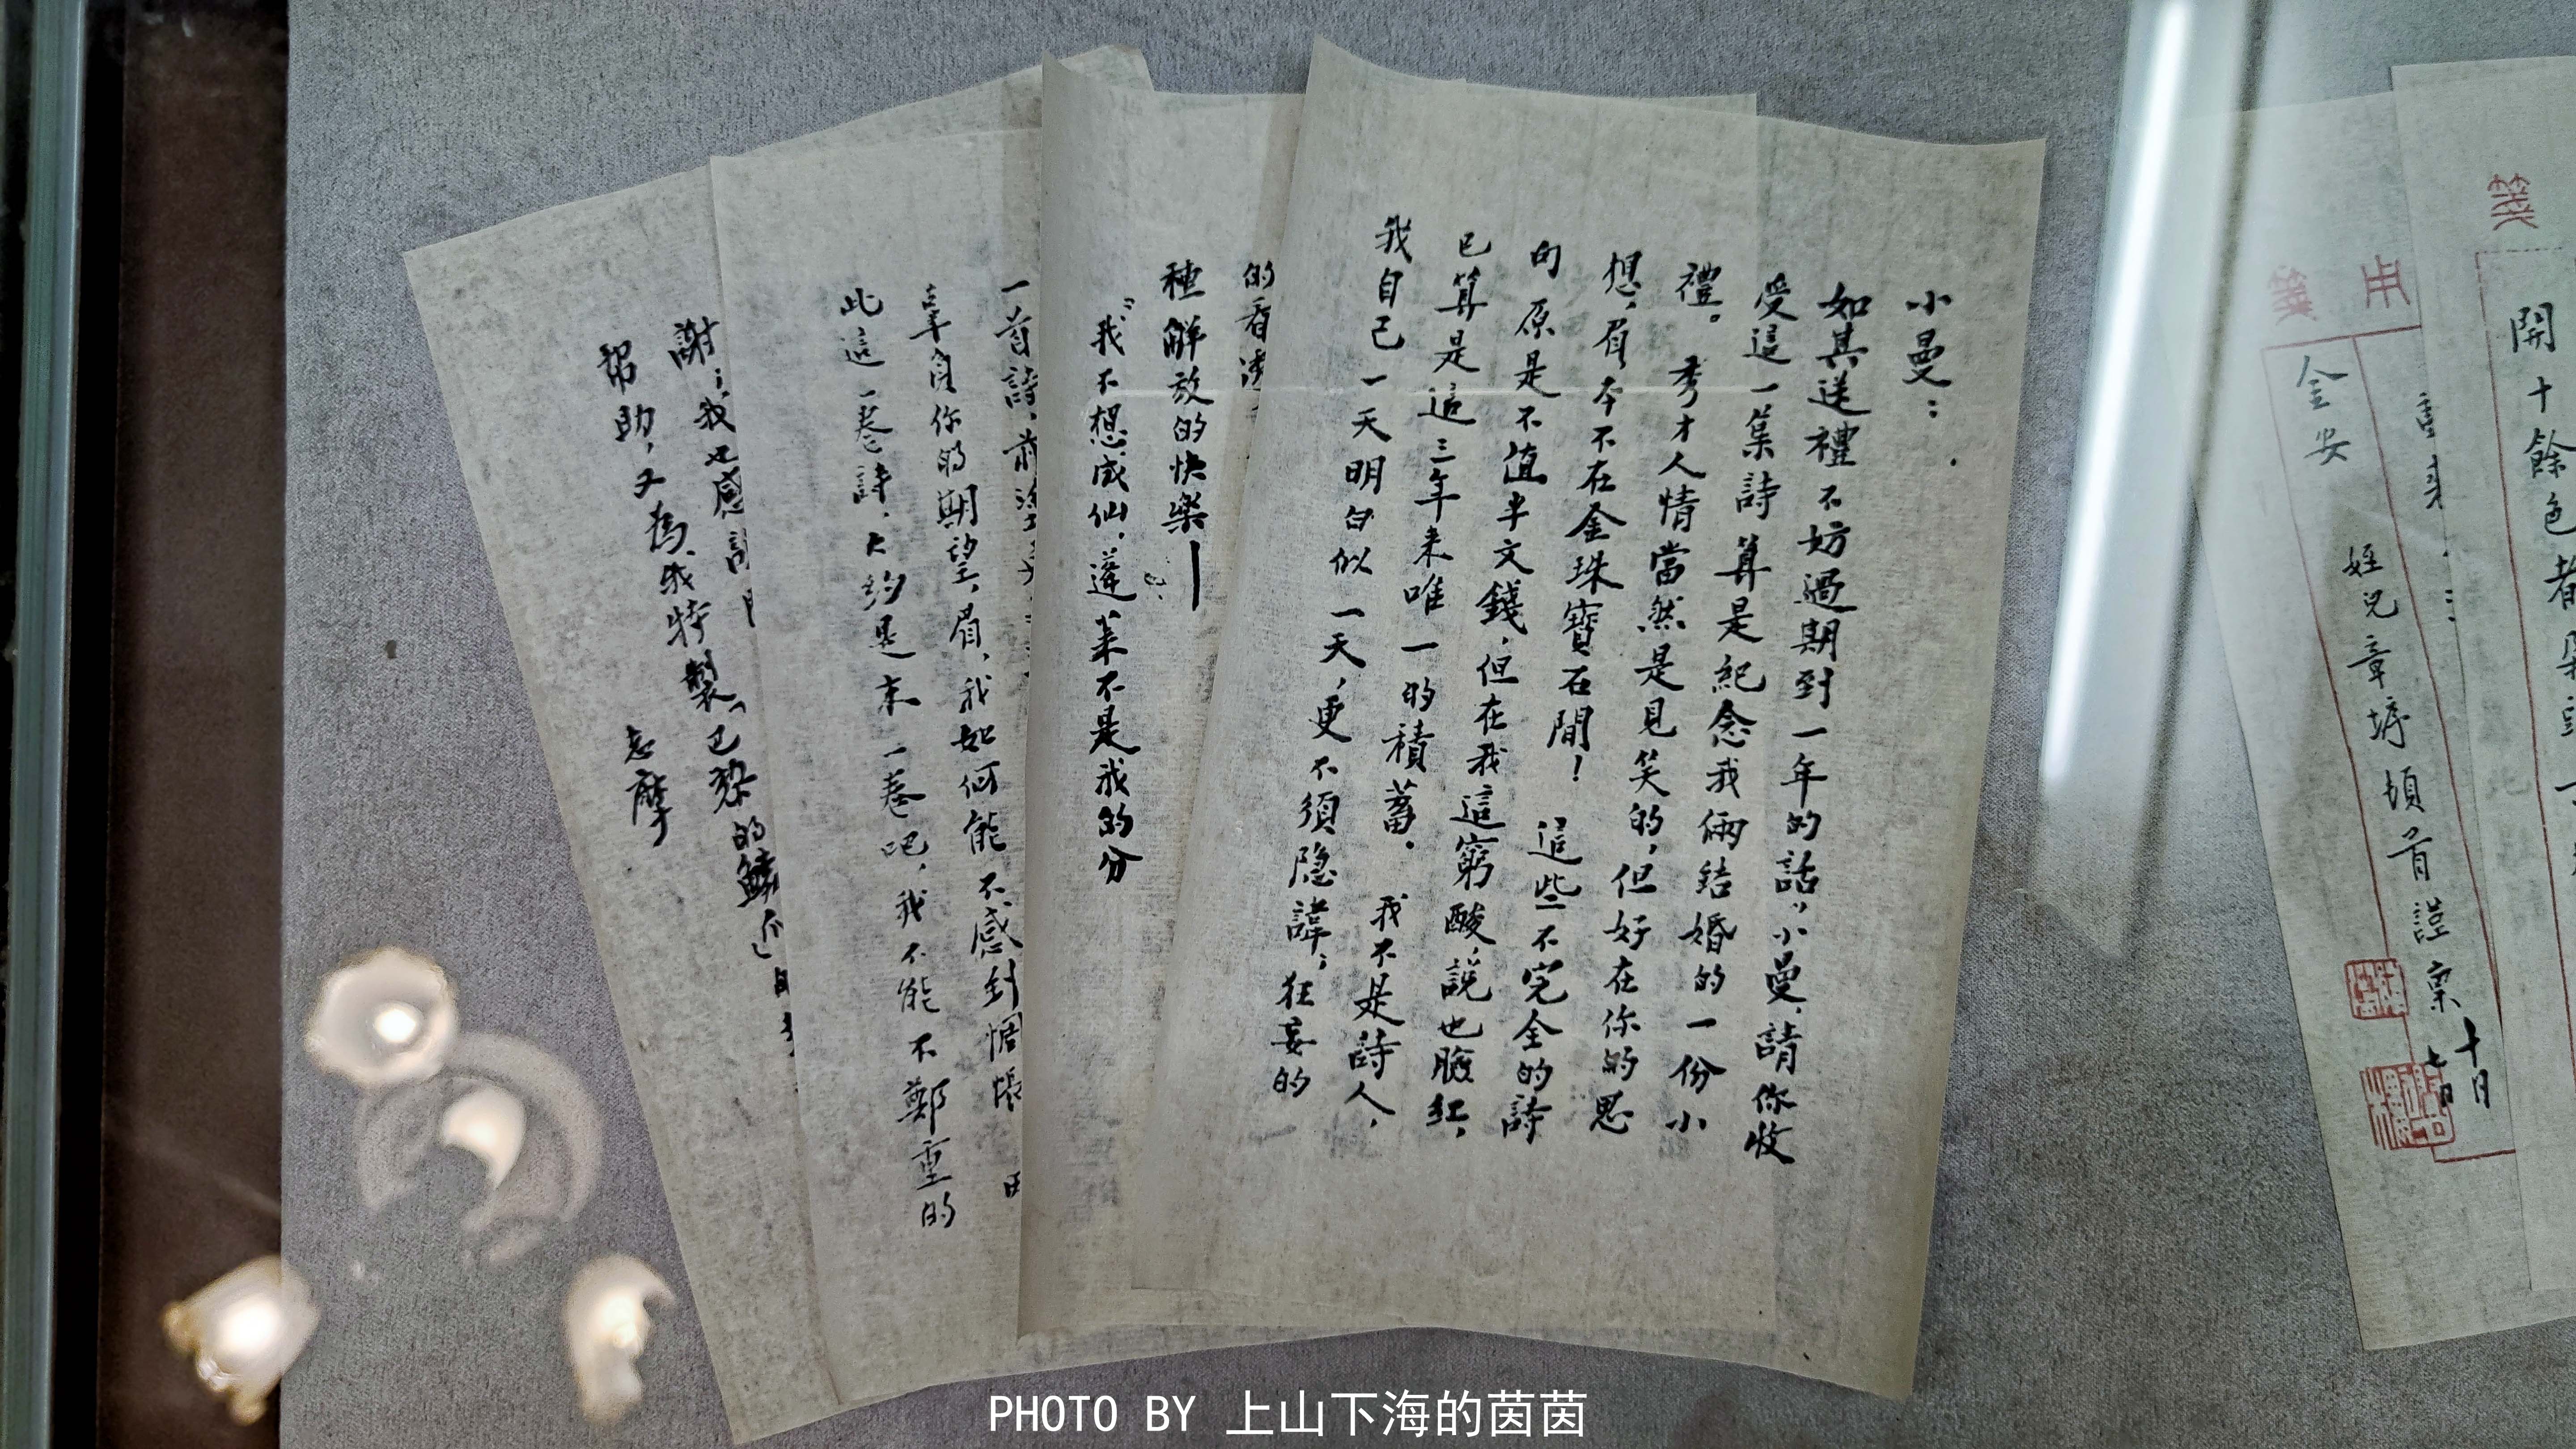 開十餘色者
金安
姪兒章垿頓首謹稟
十月
七日
小曼：
如其送禮不妨過期到一年的話，小曼，請你收
受這一集詩算是紀念我倆結婚的一份小
禮。秀才人情當然是見笑的，但好在你的思
想，眉，本不在金珠寶石間！這些不完全的詩
句原是不值半文錢，但在我這窮酸，說也臉紅，
已算是這三年來唯一的積蓄。我不是詩人，
我自己一天明白似一天，更不須隱諱；狂妄的
的看
種解放的快樂——
“我不想成仙，蓬萊不是我的分
一首詩，前
辜負你的期望，眉，我如何能不感到惆悵
此這一卷詩，大約是末一卷吧，我不能不鄭重的
謝；我也感
幫助，又為我特製“巴黎的鱗
志摩
PHOTO BY 上山下海的茵茵